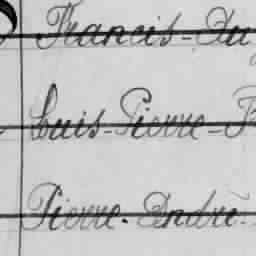 Francis-Au
Luis-Pierre-
Pierre-André-